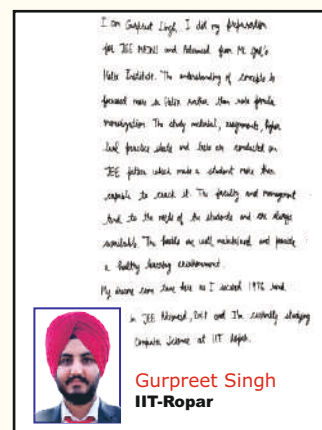 I am Gurpreet Singh, I did my preparation
for JEE MAINS and Advanced from Mr. Goel's
Helix Institute. The understanding of concepts is
focused more in Helix rather than rote formula
memorization. The study material, assignments, higher
level practice sheets and tests are conducted on
JEE pattern which make a student more than
capable to crack it. The faculty and management
tend to the needs of the students and are always
available. The hostels are well maintained and provide
a healthy learning environment.
My dreams came true here as I secured 1976 rank
in JEE Advanced, and I'm currently studying
Computer Science at IIT Ropar.
Gurpreet Singh
IIT-Ropar